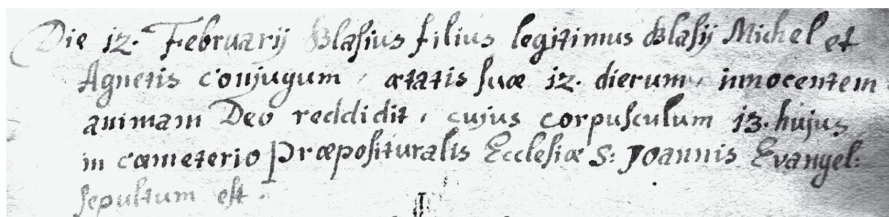 Die 12. Februarij Blasius filius legitimus Blasij Michel et
Agnetis conjugum, ætatis suæ 12. dierum, innocentem
animam Deo reddidit, cujus corpusculum 13. hujus
in cæmeterio Præposituralis Ecclesiæ S: Joannis Evangel:
sepultum est.